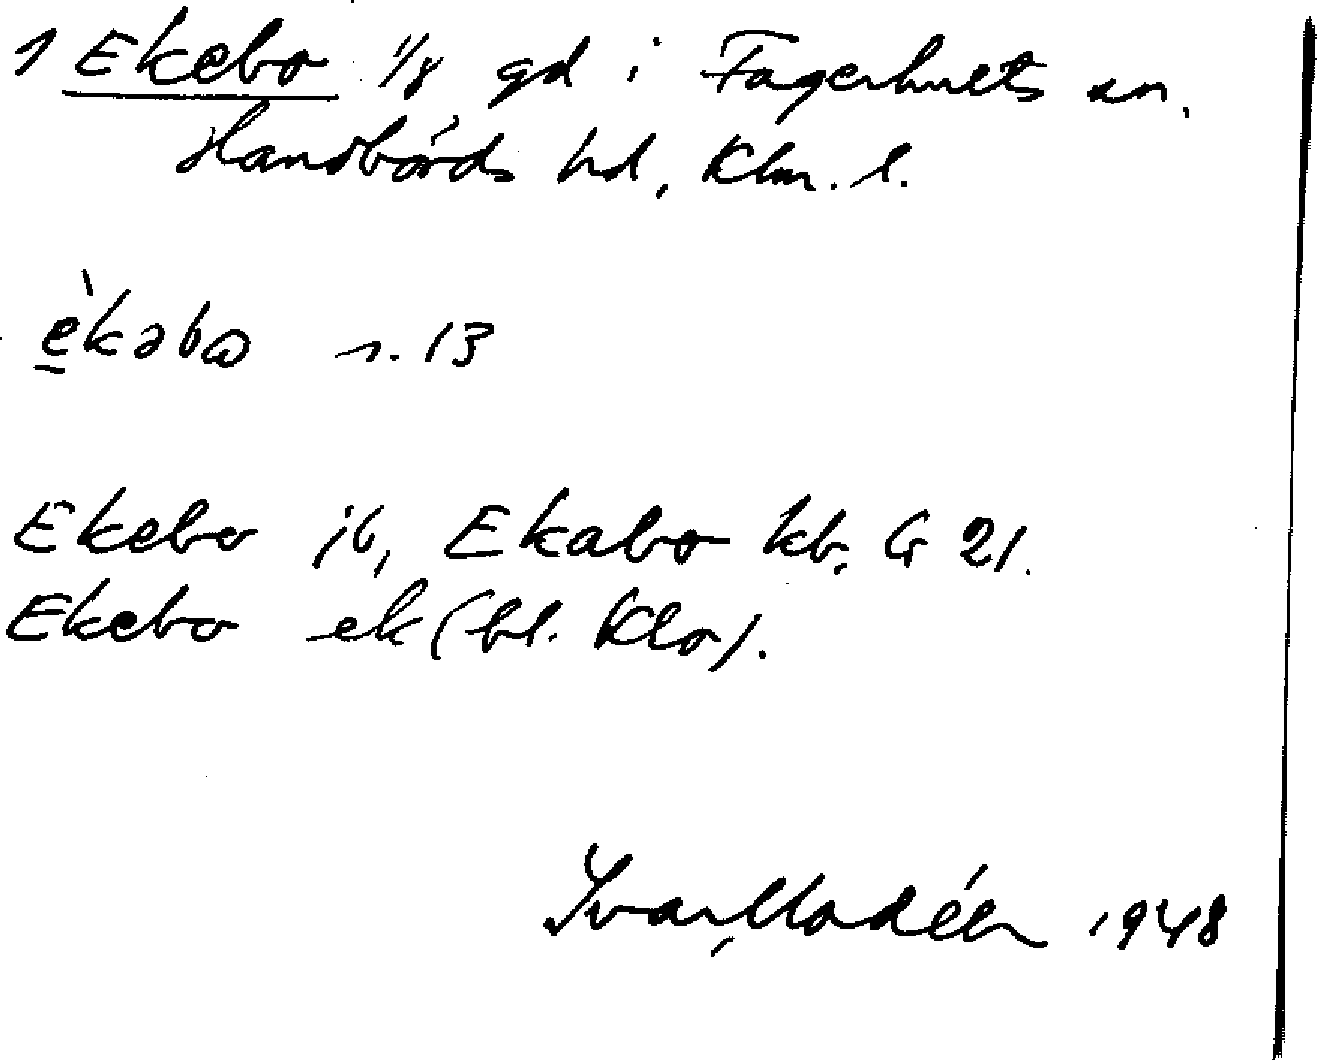 1 Ekebo 1/8 gd i Fagerhults sn.
Handbörds hd, Klm. l.
èkəbω s. 13
Ekebo jb, Ekabo kb. G 21.
Ekebo ek (bl. Klo).
Ivar Modéer 1948